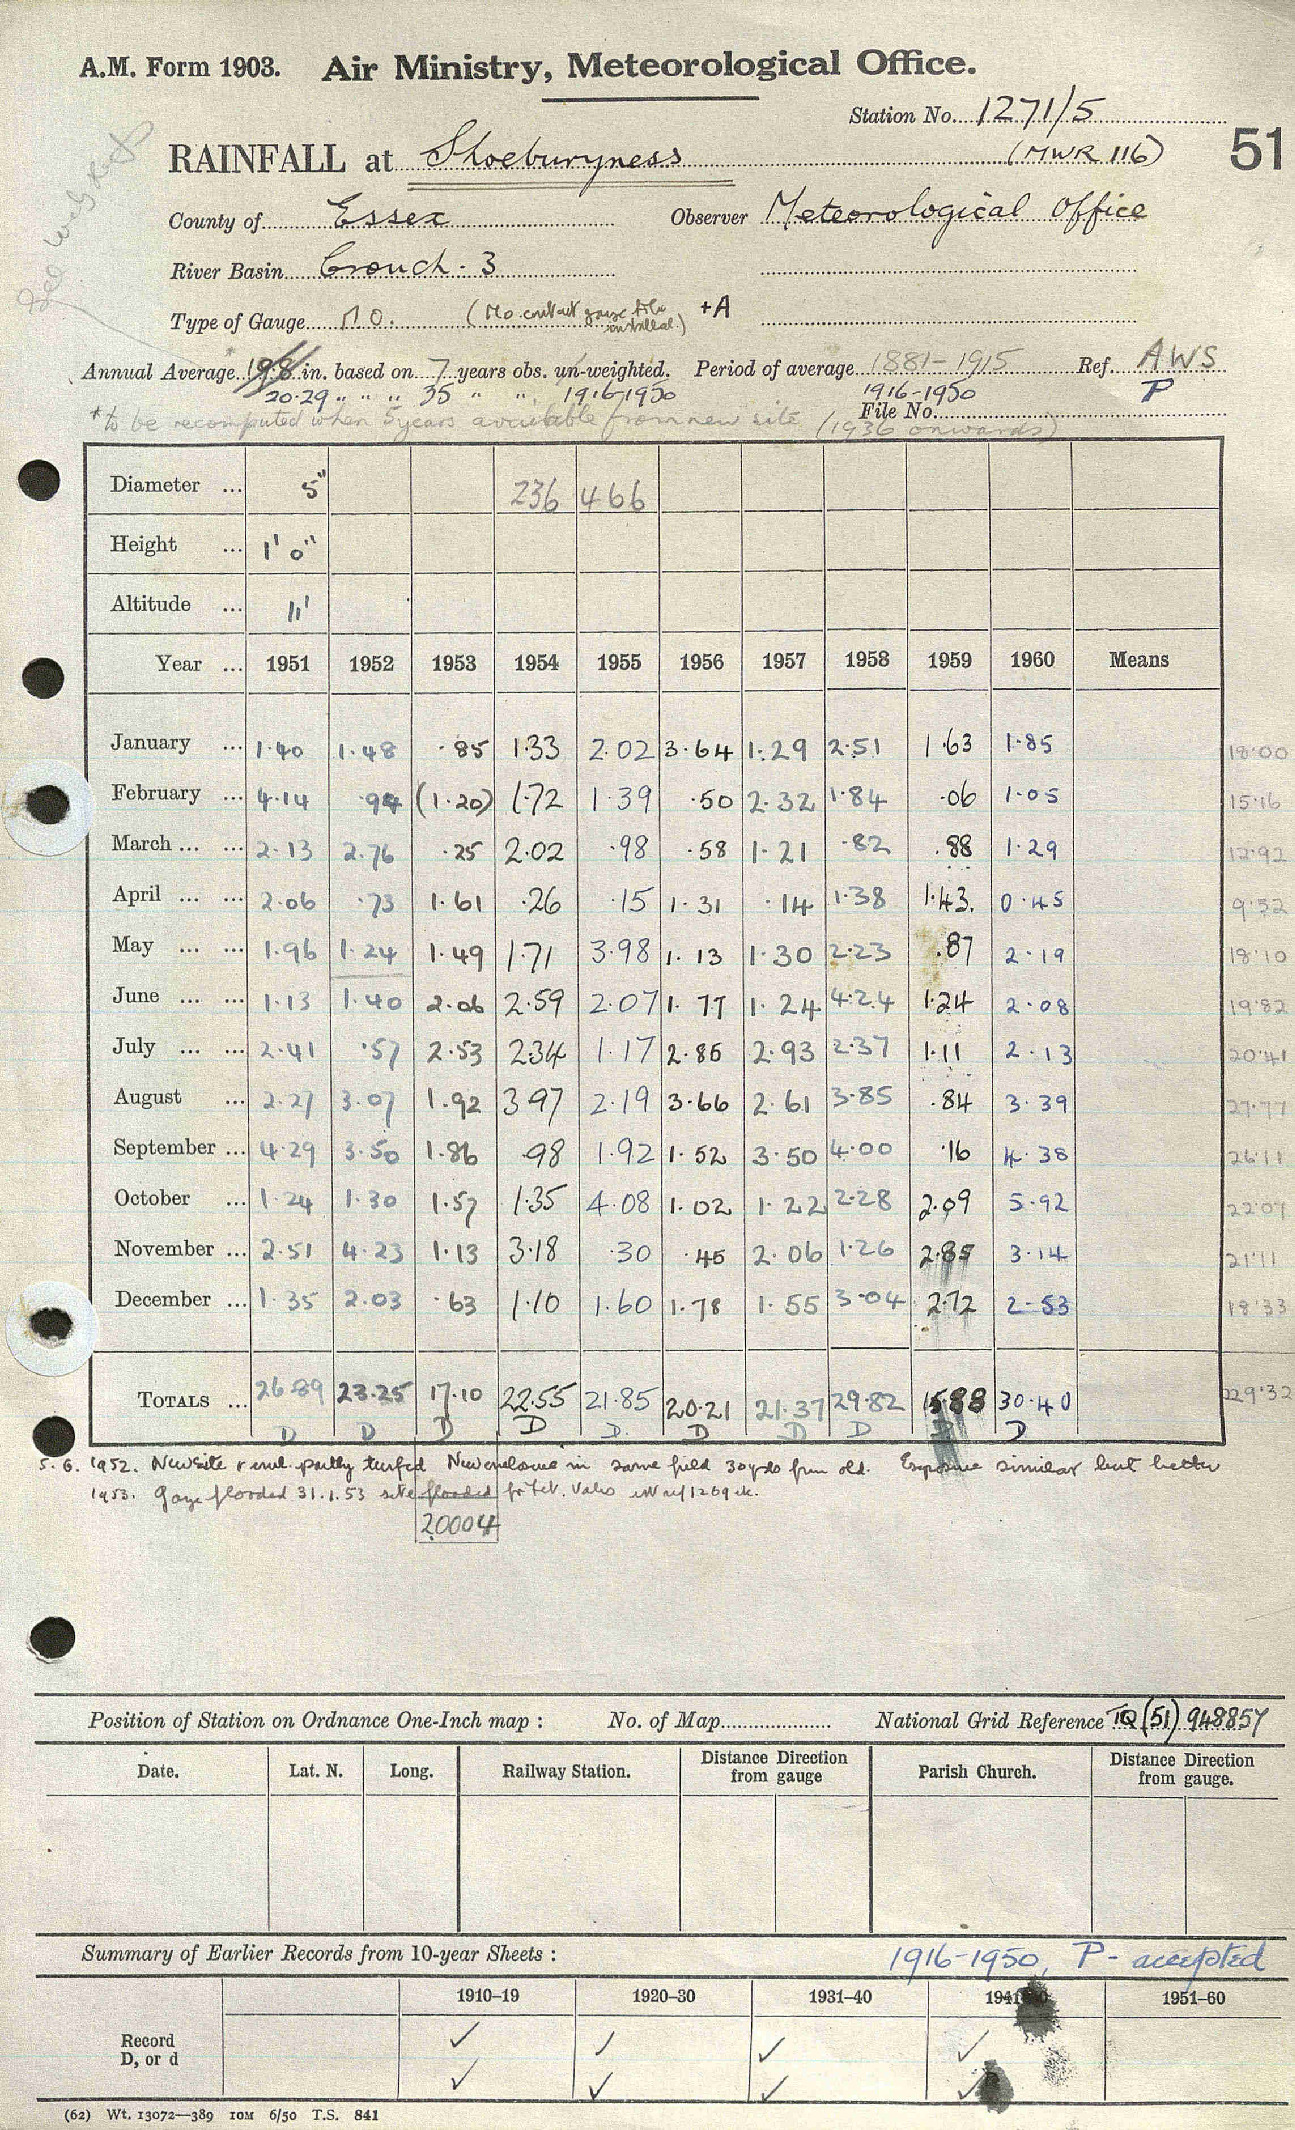 A.M. Form 1903. Air Ministry, Meteorological Office.
Station No. 1271/5
51
RAINFALL at Shoeburyness (MWR 116)
County of Essex Observer Meteorological Office
River Basin Crouch - 3
Type of Gauge M O. (Mo contact gauge also installed) +A
Annual Average 19.8 in. based on 7 years obs. un-weighted. Period of average 1881-1915 Ref. AWS
20.29 " " " 35 " " 1916-1950 1916-1950 P
File No.
* to be recomputed when 5 years available from new site (1936 onwards)
Diameter ... 5" 236 466
Height ... 1' 0"
Altitude ... 11'
Year ... 1951 1952 1953 1954 1955 1956 1957 1958 1959 1960 Means
January ... 1.40 1.48 .85 1.33 2.02 3.64 1.29 2.51 1.63 1.85 18.00
February ... 4.14 .94 (1.20) 1.72 1.39 .50 2.32 1.84 .06 1.05 15.16
March ... ... 2.13 2.76 .25 2.02 .98 .58 1.21 .82 .88 1.29 12.92
April ... ... 2.06 .73 1.61 .26 .15 1.31 .14 1.38 1.43. 0.45 9.52
May ... ... 1.96 1.24 1.49 1.71 3.98 1.13 1.30 2.23 .87 2.19 18.10
June ... ... 1.13 1.40 2.06 2.59 2.07 1.77 1.24 4.24 1.24 2.08 19.82
July ... ... 2.41 .57 2.53 2.34 1.17 2.85 2.93 2.37 1.11 2.13 20.41
August ... 2.27 3.07 1.92 3.97 2.19 3.66 2.61 3.85 .84 3.39 27.77
September ... 4.29 3.50 1.86 .98 1.92 1.52 3.50 4.00 .16 4.38 26.11
October ... 1.24 1.30 1.57 1.35 4.08 1.02 1.22 2.28 2.09 5.92 22.07
November ... 2.51 4.23 1.13 3.18 .30 .45 2.06 1.26 2.85 3.14 21.11
December ... 1.35 2.03 .63 1.10 1.60 1.78 1.55 3.04 2.72 2.53 18.33
TOTALS ... 26.89 23.25 17.10 22.55 21.85 20.21 21.37 29.82 15.88 30.40 229.32
D D D D D. D D D D D
5. 6. 1952. New site & encl. partly turfed New enclosure in same field 30 yds from old. Exposure similar but better
1953. Gauge flooded 31.1.53 site flooded for Feb.
20004
Position of Station on Ordnance One-Inch map : No. of Map National Grid Reference TQ (51) 948857
Date. Lat. N. Long. Railway Station. Distance Direction from gauge Parish Church. Distance Direction from gauge.
Summary of Earlier Records from 10-year Sheets : 1916-1950, P - accepted
1910-19 1920-30 1931-40 1941 1951-60
Record ✓ ✓ ✓ ✓
D, or d ✓ ✓ ✓ ✓
(62) Wt. 13072—389 10M 6/50 T.S. 841